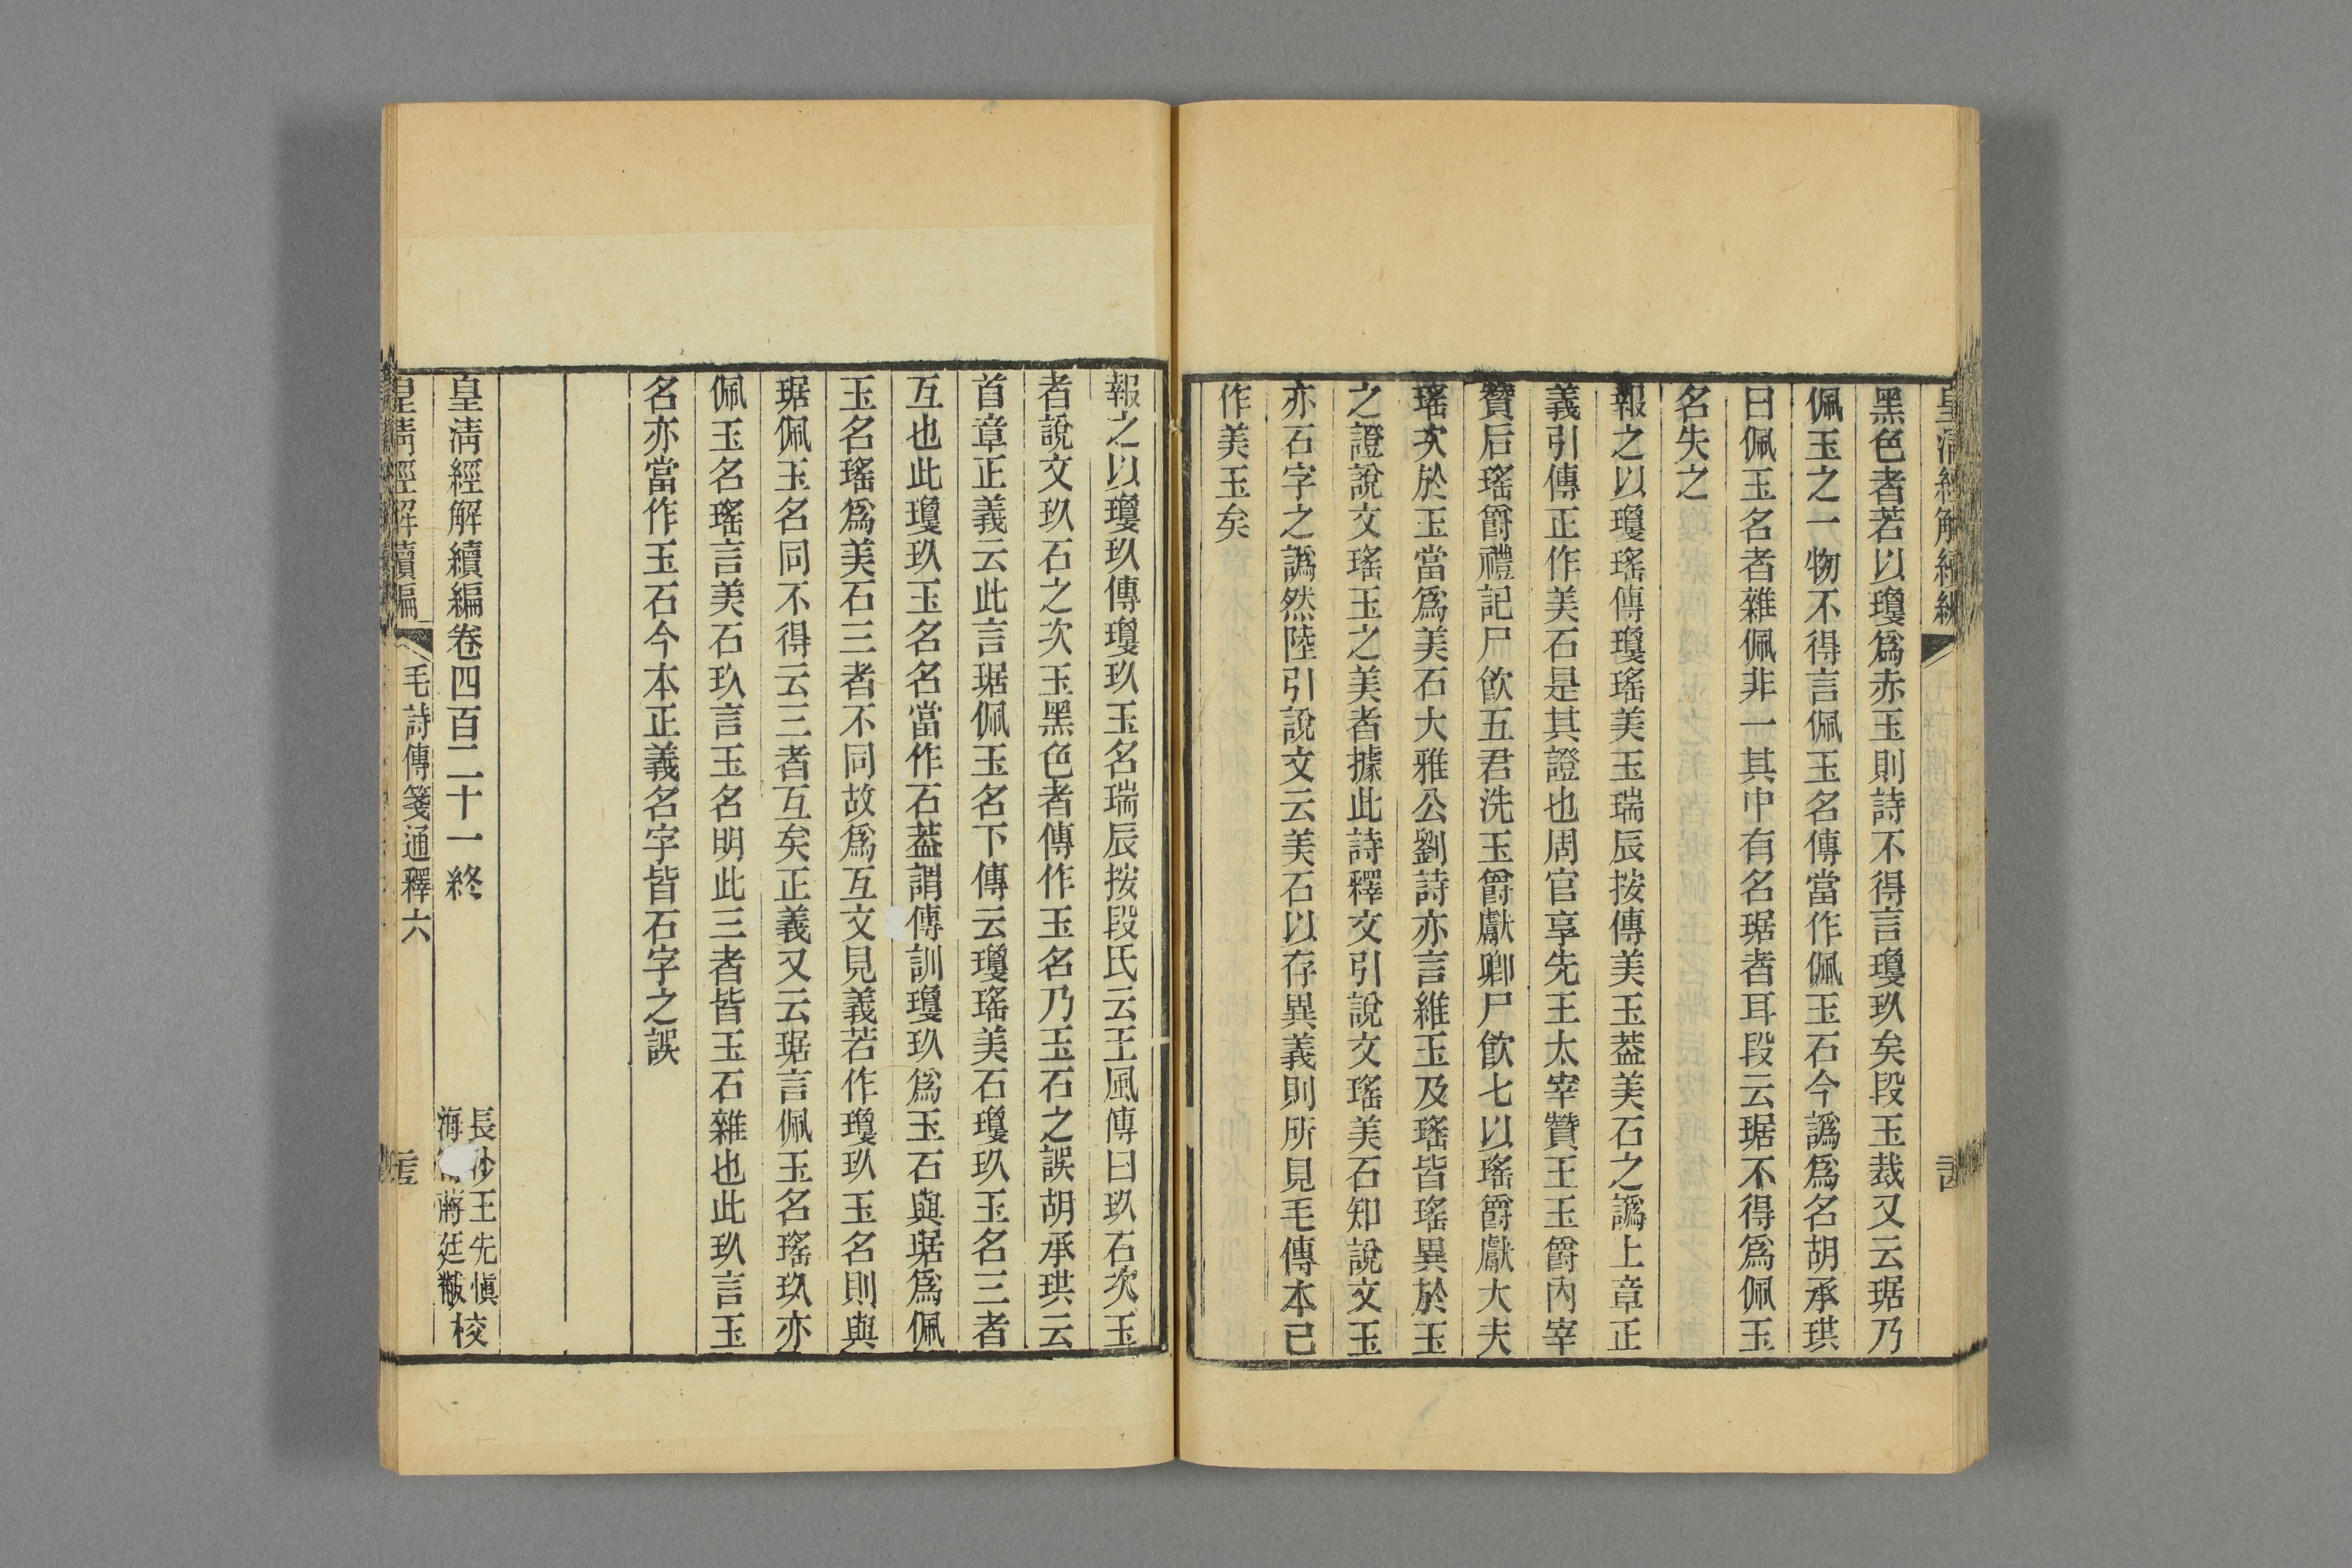 黑色者若以瓊爲赤玉則詩不得言瓊玖矣段玉裁又云琚乃
佩玉之一物不得言佩玉名傳當作佩玉石今譌爲名胡承珙
曰佩玉名者雜佩非一其中有名琚者耳段云琚不得爲佩玉
名失之
報之以瓊瑤傳瓊瑤美玉瑞辰按傳美玉葢美石之譌上章正
義引傳正作美石是其證也周官享先王太宰贊王玉爵內宰
贊后瑤爵禮記尸飮五君洗玉爵獻卿尸飮七以瑤爵獻大夫
瑤次於玉當爲美石大雅公劉詩亦言維玉及瑤皆瑤異於玉
之證說文瑤玉之美者據此詩釋文引說文瑤美石知說文玉
亦石字之譌然陸引說文云美石以存異義則所見毛傳本已
作美玉矣
報之以瓊玖傳瓊玖玉名瑞辰按段氏云王風傳曰玖石次玉
者說文玖石之次玉黑色者傳作玉名乃玉石之誤胡承珙云
首章正義云此言琚佩玉名下傳云瓊瑤美石瓊玖玉名三者
互也此瓊玖玉名名當作石葢謂傳訓瓊玖爲玉石與琚爲佩
玉名瑤爲美石三者不同故爲互文見義若作瓊玖玉名則與
琚佩玉名同不得云三者互矣正義又云琚言佩玉名瑤玖亦
佩玉名瑤言美石玖言玉名明此三者皆玉石雜也此玖言玉
名亦當作玉石今本正義名字皆石字之誤
皇淸經解續編卷四百二十一終
長沙王先愼
海蔣廷黻校
皇淸經解續編 毛詩傳箋通釋六